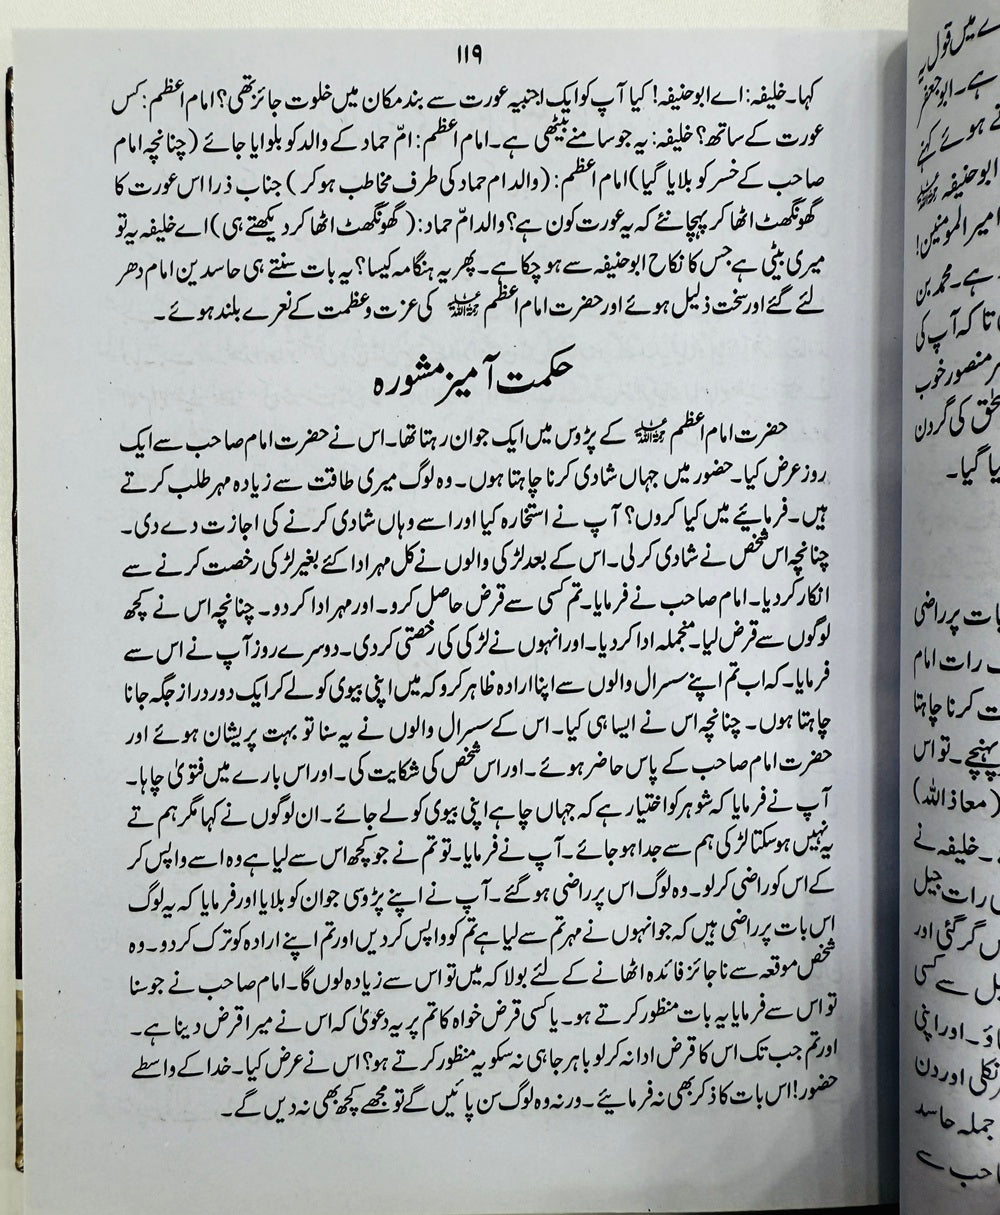 ۱۱۹
کہا۔ خلیفہ: اے ابوحنیفہ! کیا آپ کو ایک اجنبیہ عورت سے بند مکان میں خلوت جائز تھی؟ امام اعظم: کس
عورت کے ساتھ؟ خلیفہ: یہ جو سامنے بیٹھی ہے۔ امام اعظم: امّ حماد کے والد کو بلوایا جائے (چنانچہ امام
صاحب کے خسر کو بلایا گیا) امام اعظم: (والد ام حماد کی طرف مخاطب ہوکر) جناب ذرا اس عورت کا
گھونگھٹ اٹھا کر پہچانئے کہ یہ عورت کون ہے؟ والد امّ حماد: (گھونگھٹ اٹھا کر دیکھتے ہی) اے خلیفہ یہ تو
میری بیٹی ہے جس کا نکاح ابوحنیفہ سے ہو چکا ہے۔ پھر یہ ہنگامہ کیسا؟ یہ بات سنتے ہی حاسدین امام دھر
لئے گئے اور سخت ذلیل ہوئے اور حضرت امام اعظم کی عزت و عظمت کے نعرے بلند ہوئے۔
حکمت آمیز مشورہ
حضرت امام اعظم کے پڑوس میں ایک جوان رہتا تھا۔ اس نے حضرت امام صاحب سے ایک
روز عرض کیا۔ حضور میں جہاں شادی کرنا چاہتا ہوں۔ وہ لوگ میری طاقت سے زیادہ مہر طلب کرتے
ہیں۔ فرمائیے میں کیا کروں؟ آپ نے استخارہ کیا اور اسے وہاں شادی کرنے کی اجازت دے دی۔
چنانچہ اس شخص نے شادی کر لی۔ اس کے بعد لڑکی والوں نے کل مہر ادا کئے بغیر لڑکی رخصت کرنے سے
انکار کر دیا۔ امام صاحب نے فرمایا۔ تم کسی سے قرض حاصل کرو۔ اور مہر ادا کر دو۔ چنانچہ اس نے کچھ
لوگوں سے قرض لیا۔ منجملہ ادا کر دیا۔ اور انہوں نے لڑکی کی رخصتی کر دی۔ دوسرے روز آپ نے اس سے
فرمایا۔ کہ اب تم اپنے سسرال والوں سے اپنا ارادہ ظاہر کرو کہ میں اپنی بیوی کو لے کر ایک دور دراز جگہ جانا
چاہتا ہوں۔ چنانچہ اس نے ایسا ہی کیا۔ اس کے سسرال والوں نے یہ سنا تو بہت پریشان ہوئے اور
حضرت امام صاحب کے پاس حاضر ہوئے۔ اور اس شخص کی شکایت کی۔ اور اس بارے میں فتویٰ چاہا۔
آپ نے فرمایا کہ شوہر کو اختیار ہے کہ جہاں چاہے اپنی بیوی کو لے جائے۔ ان لوگوں نے کہا مگر ہم تے
یہ نہیں ہو سکتا لڑکی ہم سے جدا ہو جائے۔ آپ نے فرمایا۔ تو تم نے جو کچھ اس سے لیا ہے وہ اسے واپس کر
کے اس کو راضی کر لو۔ وہ لوگ اس پر راضی ہو گئے۔ آپ نے اپنے پڑوسی جوان کو بلایا اور فرمایا کہ یہ لوگ
اس بات پر راضی ہیں کہ جو انہوں نے مہر تم سے لیا ہے تم کو واپس کر دیں اور تم اپنے ارادہ کو ترک کر دو۔ وہ
شخص موقعہ سے ناجائز فائدہ اٹھانے کے لئے بولا کہ میں تو اس سے زیادہ لوں گا۔ امام صاحب نے جو سنا
تو اس سے فرمایا یہ بات منظور کرتے ہو۔ یا کسی قرض خواہ کا تم پر یہ دعویٰ کہ اس نے میرا قرض دینا ہے۔
اور تم جب تک اس کا قرض ادا نہ کر لو باہر جا ہی نہ سکو یہ منظور کرتے ہو؟ اس نے عرض کیا۔ خدا کے واسطے
حضور! اس بات کا ذکر بھی نہ فرمائیے۔ ورنہ وہ لوگ سن پائیں گے تو مجھے کچھ بھی نہ دیں گے۔
میں قول یہ
ہے۔ ابو جعفر
ہوئے کہنے
ابوحنیفہ
امیر المومنین!
ہے۔ محمد بن
تا کہ آپ کی
منصور خوب
کی گردن
گیا۔
بات پر راضی
رات امام
کرنا چاہتا
پہنچے۔ تو اس
(معاذ اللہ)
۔ خلیفہ نے
رات جیل
گر گئی اور
سے کسی
اور اپنی
نکلی اور دن
جملہ حاسد